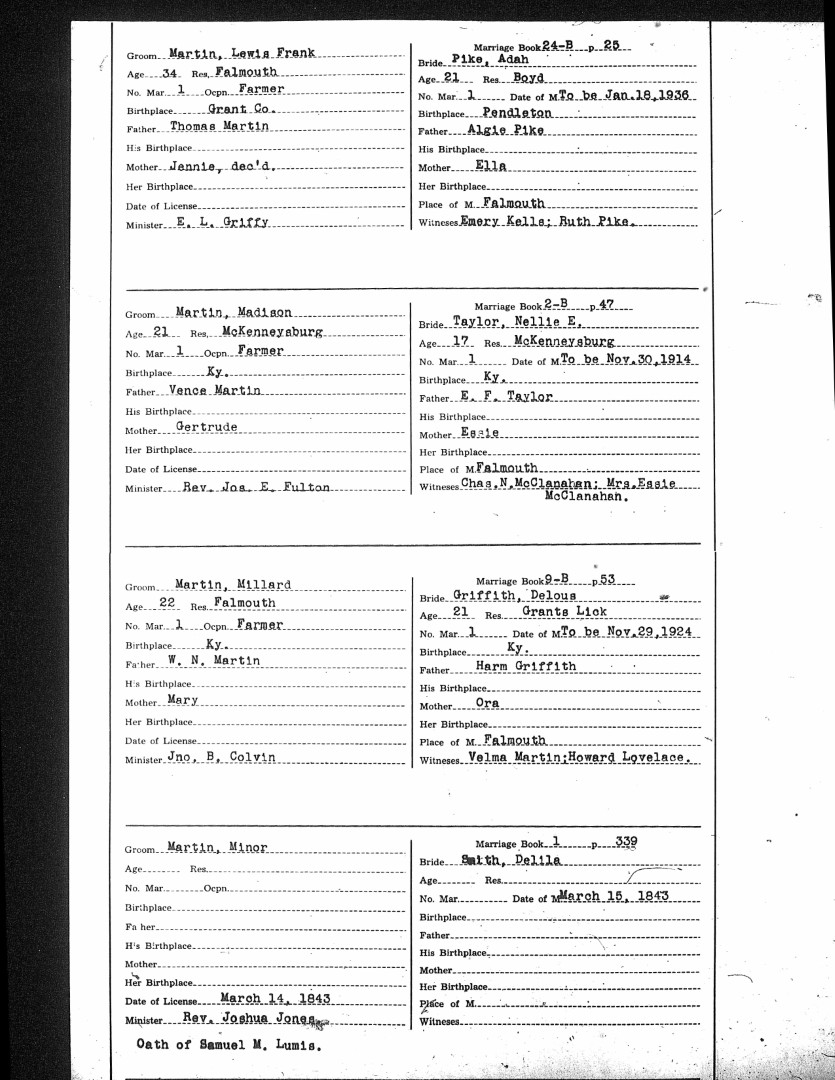 Groom Martin, Lewis Frank
Age 34 Res. Falmouth
No. Mar. 1 Ocpn. Farmer
Birthplace Grant Co.
Father Thomas Martin
His Birthplace
Mother Jennie, dec'd.
Her Birthplace
Date of License
Minister E. L. Griffy
Marriage Book 24-B p. 25
Bride Pike, Adah
Age 21 Res. Boyd
No. Mar. 1 Date of M. To be Jan.18,1936
Birthplace Pendleton
Father Algie Pike
His Birthplace
Mother Ella
Her Birthplace
Place of M. Falmouth
Witneses Emery Kells; Ruth Pike.
Groom Martin, Madison
Age 21 Res. McKenneysburg
No. Mar. 1 Ocpn. Farmer
Birthplace Ky.
Father Vence Martin
His Birthplace
Mother Gertrude
Her Birthplace
Date of License
Minister Rev. Jos. E. Fulton
Marriage Book 2-B p. 47
Bride Taylor, Nellie E.
Age 17 Res. McKenneysburg
No. Mar. 1 Date of M. To be Nov.30,1914
Birthplace Ky.
Father E. F. Taylor
His Birthplace
Mother Essie
Her Birthplace
Place of M. Falmouth
Witneses Chas.N.McClanahan; Mrs.Essie
McClanahan.
Groom Martin, Millard
Age 22 Res. Falmouth
No. Mar. 1 Ocpn. Farmer
Birthplace Ky.
Father W. N. Martin
His Birthplace
Mother Mary
Her Birthplace
Date of License
Minister Jno. B. Colvin
Marriage Book 9-B p. 53
Bride Griffith, Delous
Age 21 Res. Grants Lick
No. Mar. 1 Date of M. To be Nov.29,1924
Birthplace Ky.
Father Harm Griffith
His Birthplace
Mother Ora
Her Birthplace
Place of M. Falmouth
Witneses Velma Martin;Howard Lovelace.
Groom Martin, Minor
Age Res.
No. Mar. Ocpn.
Birthplace
Fa her
His Birthplace
Mother
Her Birthplace
Date of License March 14, 1843
Minister Rev. Joshua Jones
Oath of Samuel M. Lumis.
Marriage Book 1 p. 339
Bride Smith, Delila
Age Res.
No. Mar. Date of M. March 15, 1843
Birthplace
Father
His Birthplace
Mother
Her Birthplace
Place of M.
Witneses